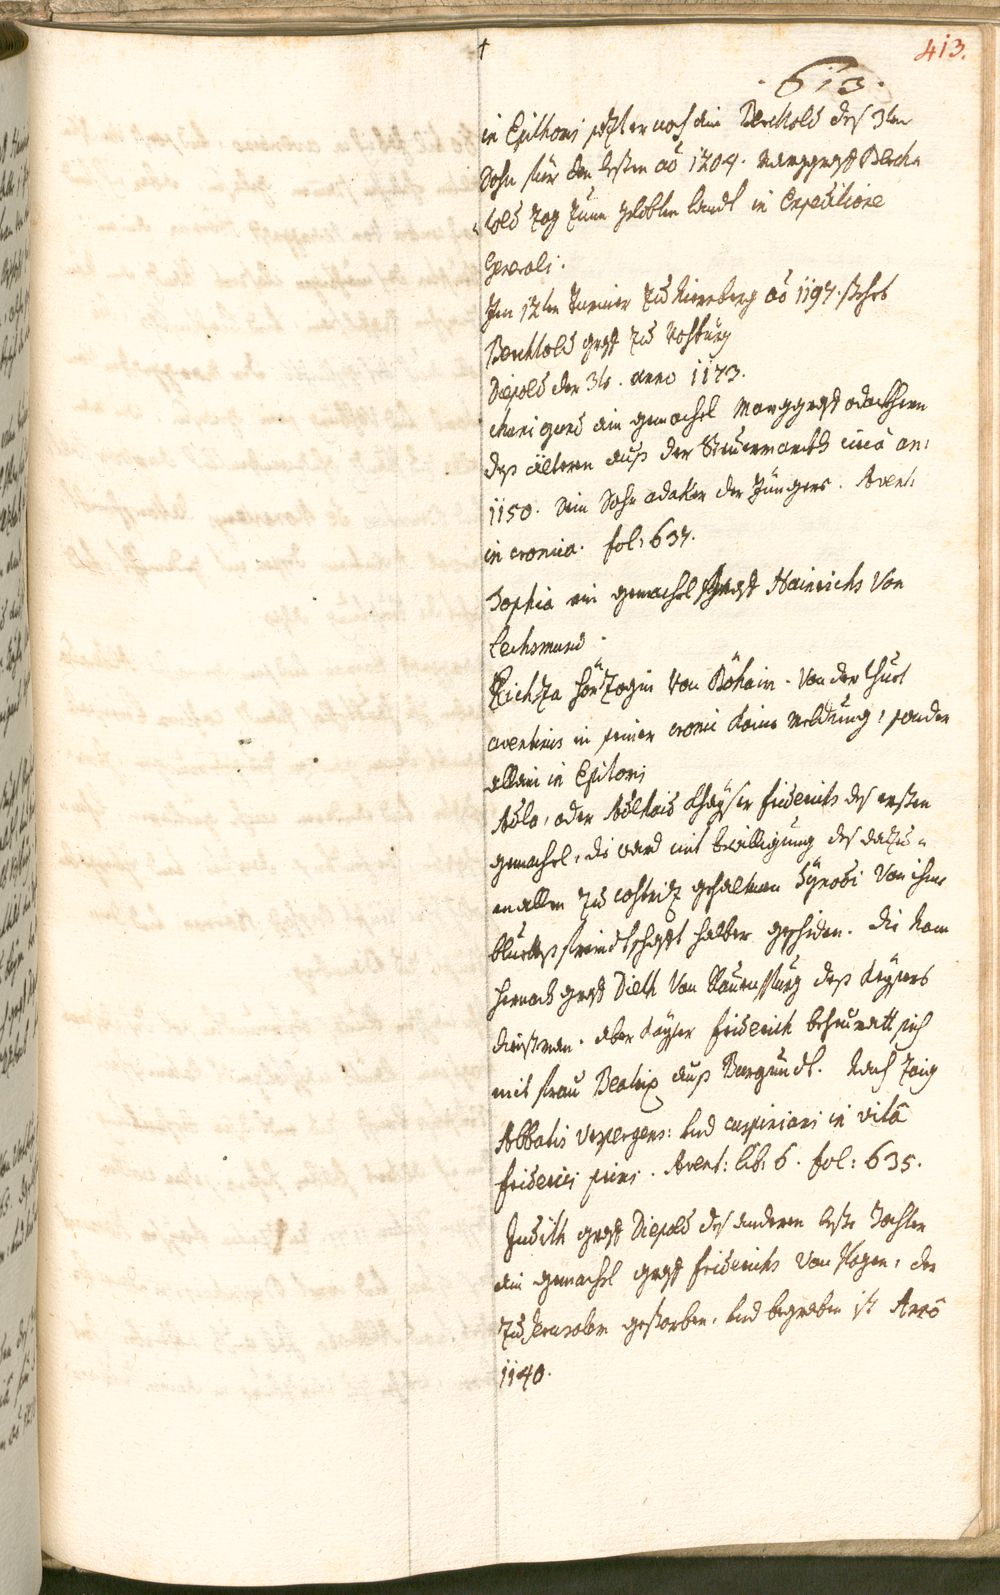 413.
613.
in Epithomi sezt er noch ain Berchtold des 3ten
Sohn für den lesten aõ 1204. Marggraff Berch=
told zog zum gelobten landt in Expeditione
Generali.
Im 12ten Turnier zu Niernberg aõ 1197. stehet
Berchtold graff zu Vohburg
Diepold der 3te. anno 1173.
ain gemachel Marggraff Odackhern
deß älteren auß der Steuermarckh circa an:
1150. Sein Sohn Odaker der Jüngere. Avent:
in cronica. fol: 637.
Sophia ein gemachel Graff Hainrichs Von
Lechsmund.
Richza Hörzogin Von Böhaim. Von der thuet
Aventinus in seiner croni kaine meldung, sonder
allain in Epitomi
Adla, oder Adlhaid Khaÿser Friderichs des ersten
gemachel, die ward mit bewilligung des
zu Costnitz gehaltnen Sÿnodi Von ihme
bluetsfreundtschafft halber geschiden. die nam
hernach graff Dieth Von Rauenspurg deß Kaÿsers
dienstman. aber Kaÿser Friderich beheuratt sich
mit frau Beatrix auß Burgundt. Nach Zaig
Abbatis Urspergens: und cuspiniani in vitâ
friderici primi. Avent: lib: 6. fol: 635.
Judith graff Diepold des anderen leste Tochter
ain gemachel graff Friderichs Von Bogen, der
zu Jerusalem gestorben, und begraben ist Anno
1140.